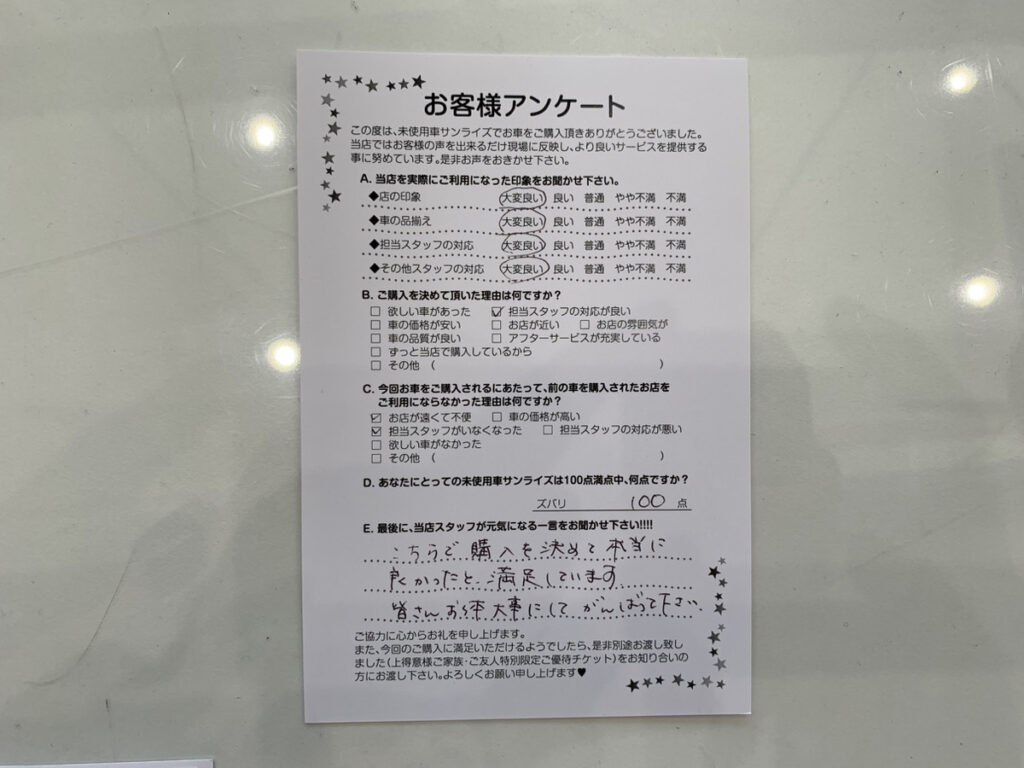 お客様アンケート
この度は、未使用車サンライズでお車をご購入頂きありがとうございました。
当店ではお客様の声を出来るだけ現場に反映し、より良いサービスを提供する
事に努めています。是非お声をおきかせ下さい。
A. 当店を実際にご利用になった印象をお聞かせ下さい。
◆店の印象 大変良い 良い 普通 やや不満 不満
◆車の品揃え 大変良い 良い 普通 やや不満 不満
◆担当スタッフの対応 大変良い 良い 普通 やや不満 不満
◆その他スタッフの対応 大変良い 良い 普通 やや不満 不満
B. ご購入を決めて頂いた理由は何ですか？
□ 欲しい車があった ☑ 担当スタッフの対応が良い
□ 車の価格が安い □ お店が近い □ お店の雰囲気が
□ 車の品質が良い □ アフターサービスが充実している
□ ずっと当店で購入しているから
□ その他（ ）
C. 今回お車をご購入されるにあたって、前の車を購入されたお店を
ご利用にならなかった理由は何ですか？
☑ お店が遠くて不便 □ 車の価格が高い
☑ 担当スタッフがいなくなった □ 担当スタッフの対応が悪い
□ 欲しい車がなかった
□ その他（ ）
D. あなたにとっての未使用車サンライズは100点満点中、何点ですか？
ズバリ 100 点
E. 最後に、当店スタッフが元気になる一言をお聞かせ下さい!!!!
こちらで購入を決めて本当に
良かったと、満足しています
皆さんお体大事にして、がんばって下さい。
ご協力に心からお礼を申し上げます。
また、今回のご購入に満足いただけるようでしたら、是非別途お渡し致し
ました（上得意様ご家族・ご友人特別限定ご優待チケット）をお知り合いの
方にお渡し下さい。よろしくお願い申し上げます♥